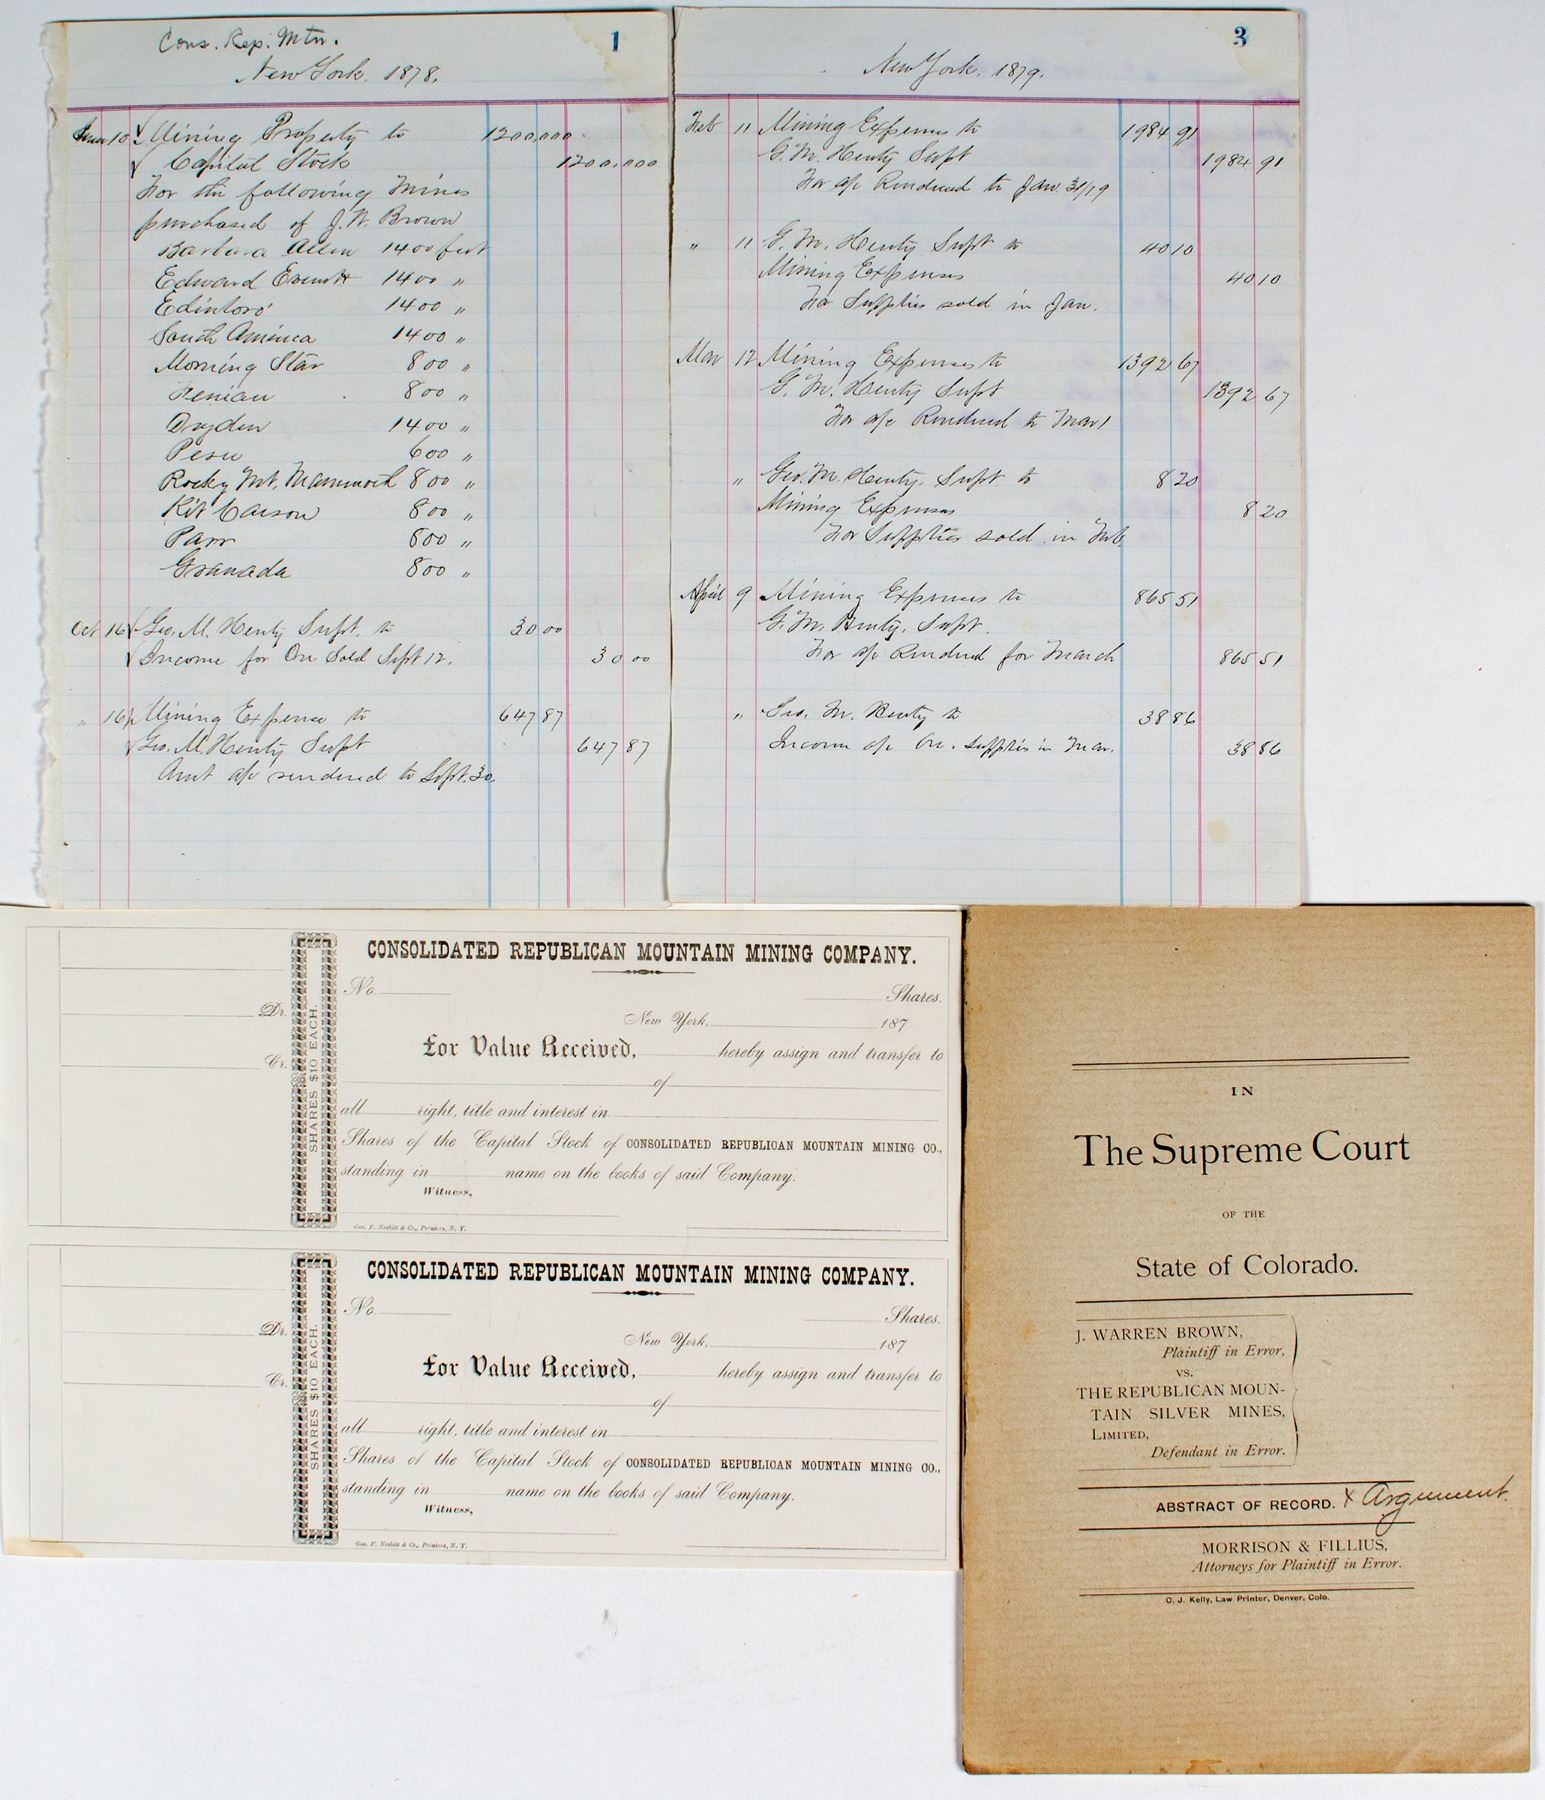 Cons. Rep. Mtn.
1
New York, 1878.
June 10 Mining Property to 1200,000
Capital Stock 1200,000
For the following Mines
purchased of J. W. Brown
Barbara Allen 1400 feet
Edward Everett 1400 "
Edinboro' 1400 "
South America 1400 "
Morning Star 800 "
Fenian 800 "
Dryden 1400 "
Peru 600 "
Rocky Mt. Mammoth 800 "
Kit Carson 800 "
Parr 800 "
Granada 800 "
Oct 16 Geo. M. Henty Supt. to 30 00
Income for Ore Sold Sept 12. 30 00
" 16 Mining Expense to 647 87
Geo. M. Henty Supt 647 87
Amt a/c rendered to Sept. 30
3
New York, 1879.
Feb 11 Mining Expenses to 1984 91
G. M. Henty Supt 1984 91
For a/c Rendered to Jan 31/79
" 11 G. M. Henty Supt to 40 10
Mining Expenses 40 10
For Supplies sold in Jan.
Mar 12 Mining Expenses to 1392 67
G. M. Henty Supt 1392 67
For a/c Rendered to Mar 1
" Geo. M. Henty, Supt to 8 20
Mining Expenses 8 20
For Supplies sold in Feb
April 9 Mining Expenses to 865 51
G. M. Henty, Supt.
For a/c Rendered for March 865 51
" Geo. M. Henty to 38 86
Income a/c Ore. Supplies in Mar. 38 86
CONSOLIDATED REPUBLICAN MOUNTAIN MINING COMPANY.
No. Shares.
Dr.
New York, 187
For Value Received, hereby assign and transfer to
Cr.
SHARES $10 EACH.
of
all right, title and interest in
Shares of the Capital Stock of CONSOLIDATED REPUBLICAN MOUNTAIN MINING CO.,
standing in name on the books of said Company.
Witness,
Geo. F. Nesbitt & Co., Printers, N. Y.
CONSOLIDATED REPUBLICAN MOUNTAIN MINING COMPANY.
No. Shares.
Dr.
New York, 187
For Value Received, hereby assign and transfer to
Cr.
SHARES $10 EACH.
of
all right, title and interest in
Shares of the Capital Stock of CONSOLIDATED REPUBLICAN MOUNTAIN MINING CO.,
standing in name on the books of said Company.
Witness,
Geo. F. Nesbitt & Co., Printers, N. Y.
IN
The Supreme Court
OF THE
State of Colorado.
J. WARREN BROWN,
Plaintiff in Error,
VS.
THE REPUBLICAN MOUN-
TAIN SILVER MINES,
LIMITED,
Defendant in Error.
ABSTRACT OF RECORD. & Argument.
MORRISON & FILLIUS,
Attorneys for Plaintiff in Error.
C. J. Kelly, Law Printer, Denver, Colo.